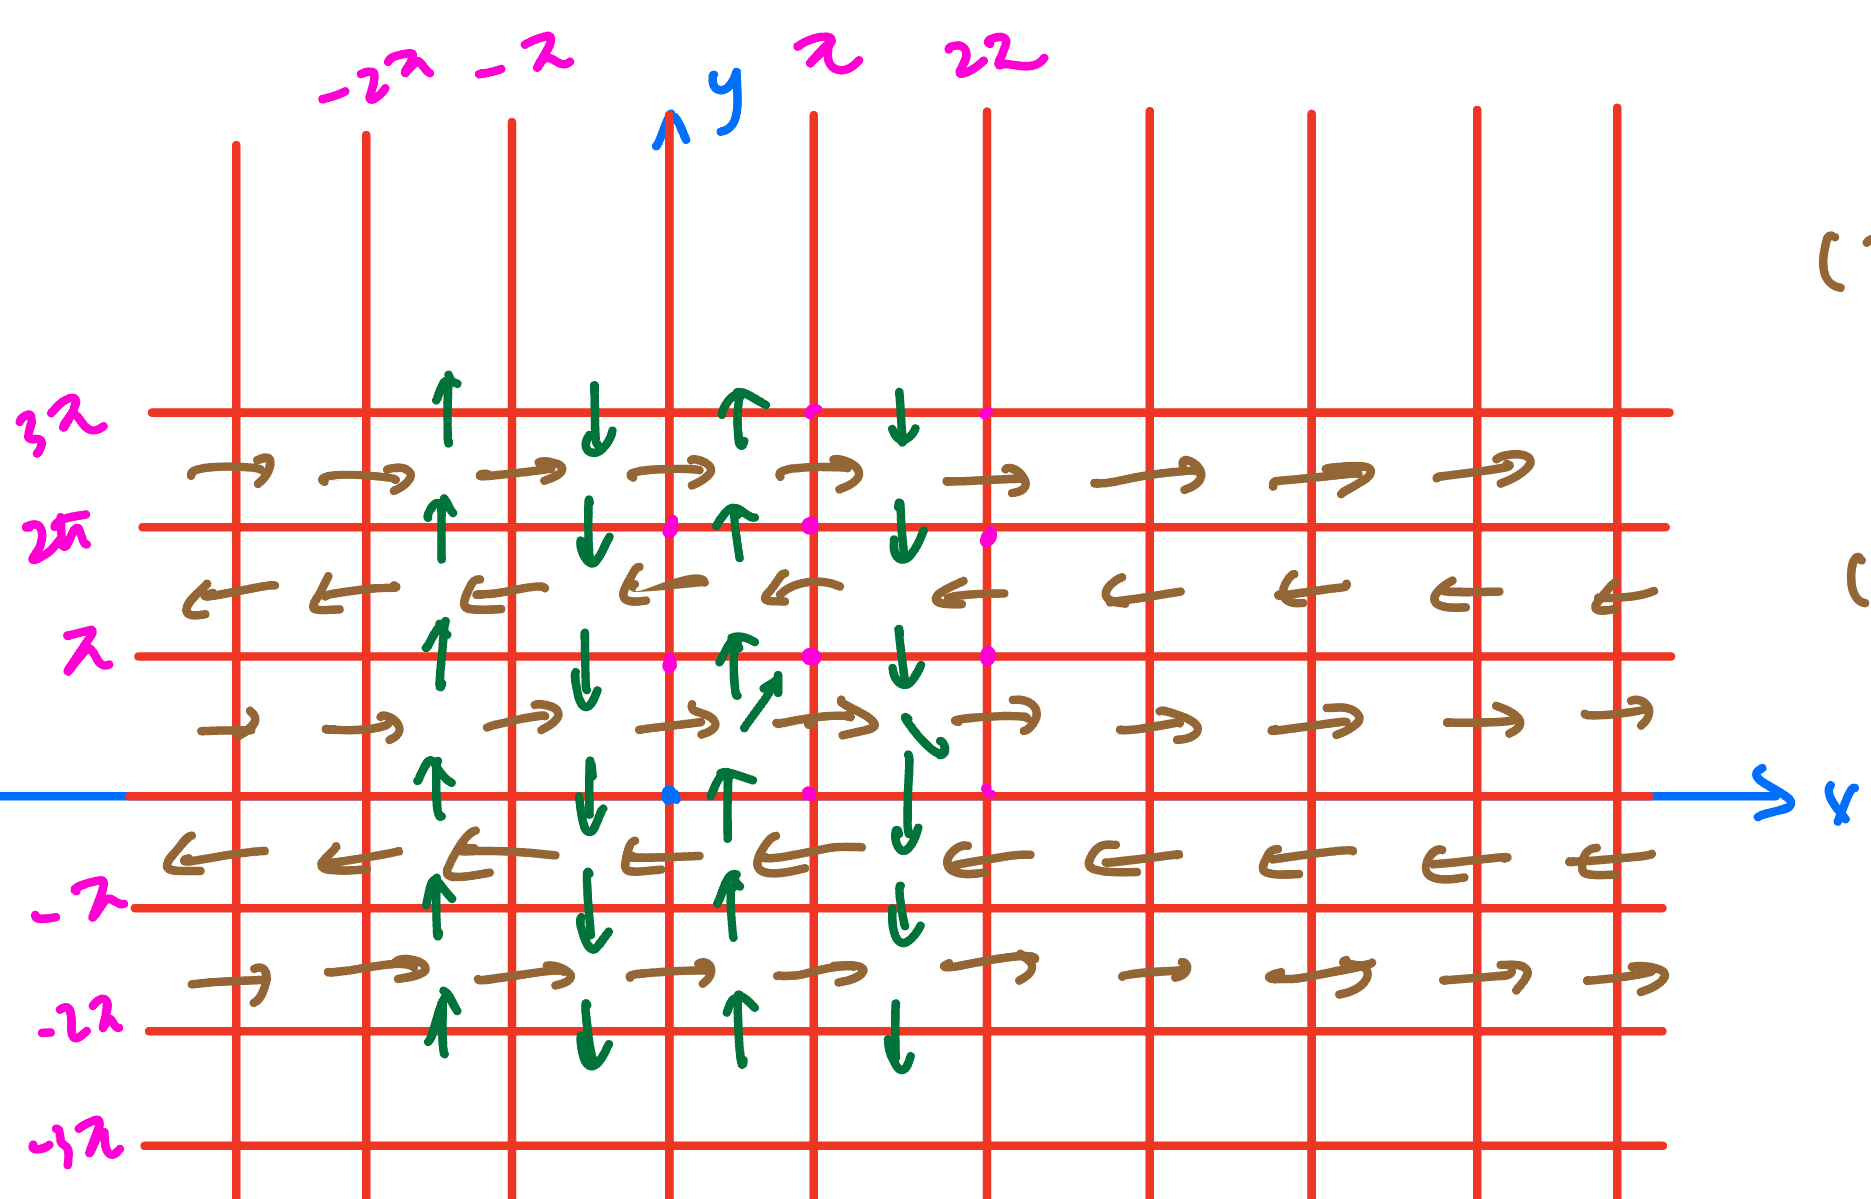 -2π -π π 2π
y
3π
2π
π
x
-π
-2π
-3π